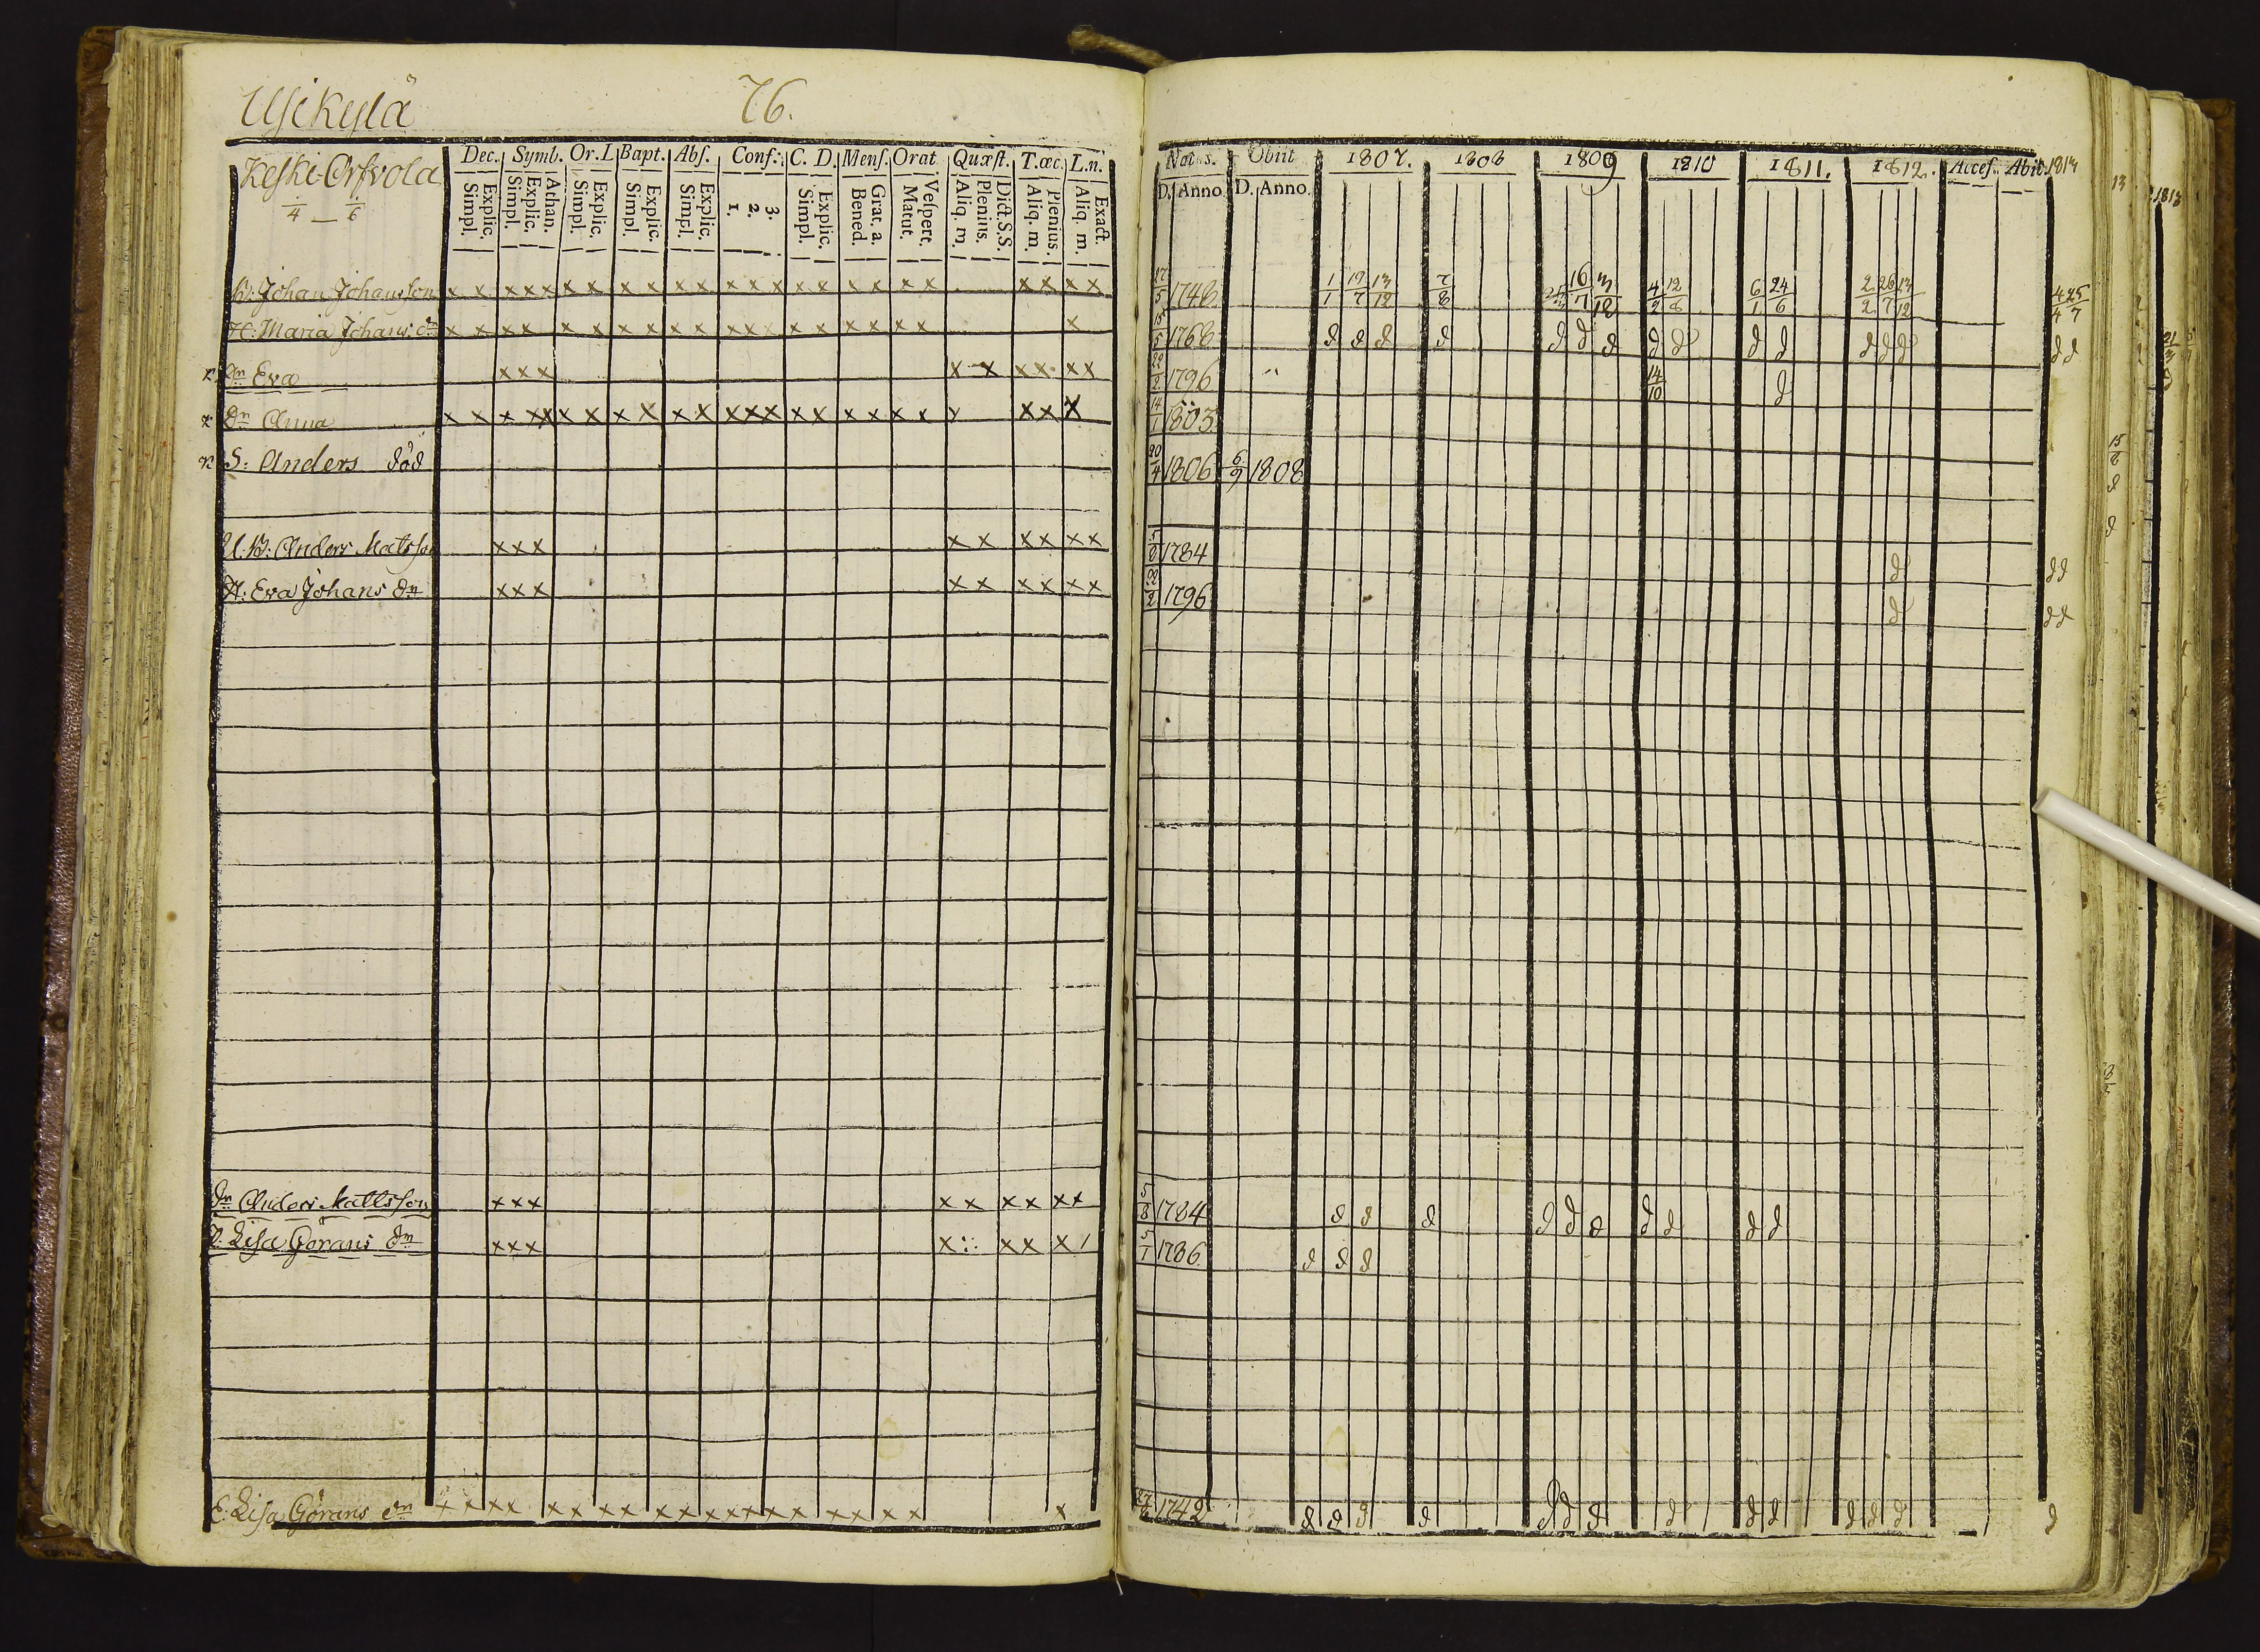 76.
Keski-Orfvola
1/4 _ 1/6
Dec. Symb. Or.L Bapt. Abſ. Conf. C. D. Menſ. Orat. Quæſt. T.œc. L.n.
Simpl. Explic. Simpl. Explic. Athan. Simpl. Explic. Simpl. Explic. Simpl. Explic. 1. 2. 3. Simpl. Explic. Bened. Grat. a. Matut. Veſpert. Aliq. m. Plenius. Dict.S.S. Aliq. m. Plenius. Aliq. m. Exact.
Natus. Obiit 1807. 1808 1809 1810 1811. 1812. Acceſ. Abit. 1813
D. Anno D. Anno.
B: Johan Johansson x x x x x x x x x x x x x x x x x x x x x x x x 1748 1/1 19/7 13/12 7/8 16/7 4/2 12/8 6/1 24/6 2/2 26/7 13/12 4/4 25/7
H: Maria Johans dr x x x x x x x x x x x x x x x x x x x x x 1768 d d d d d d d d d d d d d d d d
dr Eva x x x x x x x x x 22/2 1796 14/10 d
dr Anna x x x x x x x x x x x x x x x x x x x x x x x x 14/1 1803
S: Anders död 20/4 1806 6/9 1808
Anders Matsson x x x x x x x x x 5/8 1784 d d d
H: Eva Johans dr x x x x x x x x x 22/2 1796 d d d
Anders Mattsson x x x x x x x x x 5/8 1784 d d d d d d d d d d
Lisa Görans dr x x x x x x x 5/1 1786 d d d
E: Lisa Görans dr x x x x x x x x x x x x x x x x x x x x 1742 d d d d d d d d d d d d d d